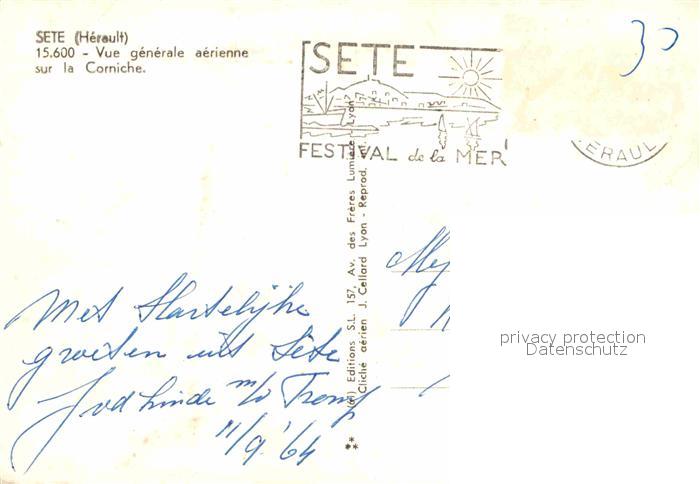 SETE (Hérault)
15.600 - Vue générale aérienne
sur la Corniche.
SETE
FESTIVAL de la MER
HERAUL
30
Editions S.L. 157, Av. des Frères Lumière Lyon
Cliché aérien J. Cellard Lyon - Reprod. int
Met Hartelijke
groeten uit Sète
m/v Tromp
11/9 '64
privacy protection
Datenschutz